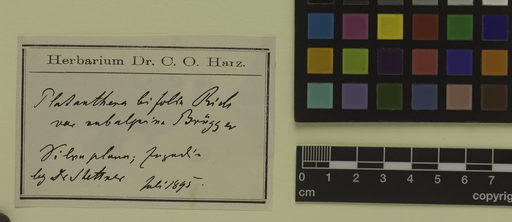 Herbarium Dr. C. O. Harz.
Platanthera bifolia Rich
var subalpina Brügger
Silvaplana; Engadin
leg Dr Stettner Juli 1895.
0 1 2 3 4 5 6 7
cm
copyrig